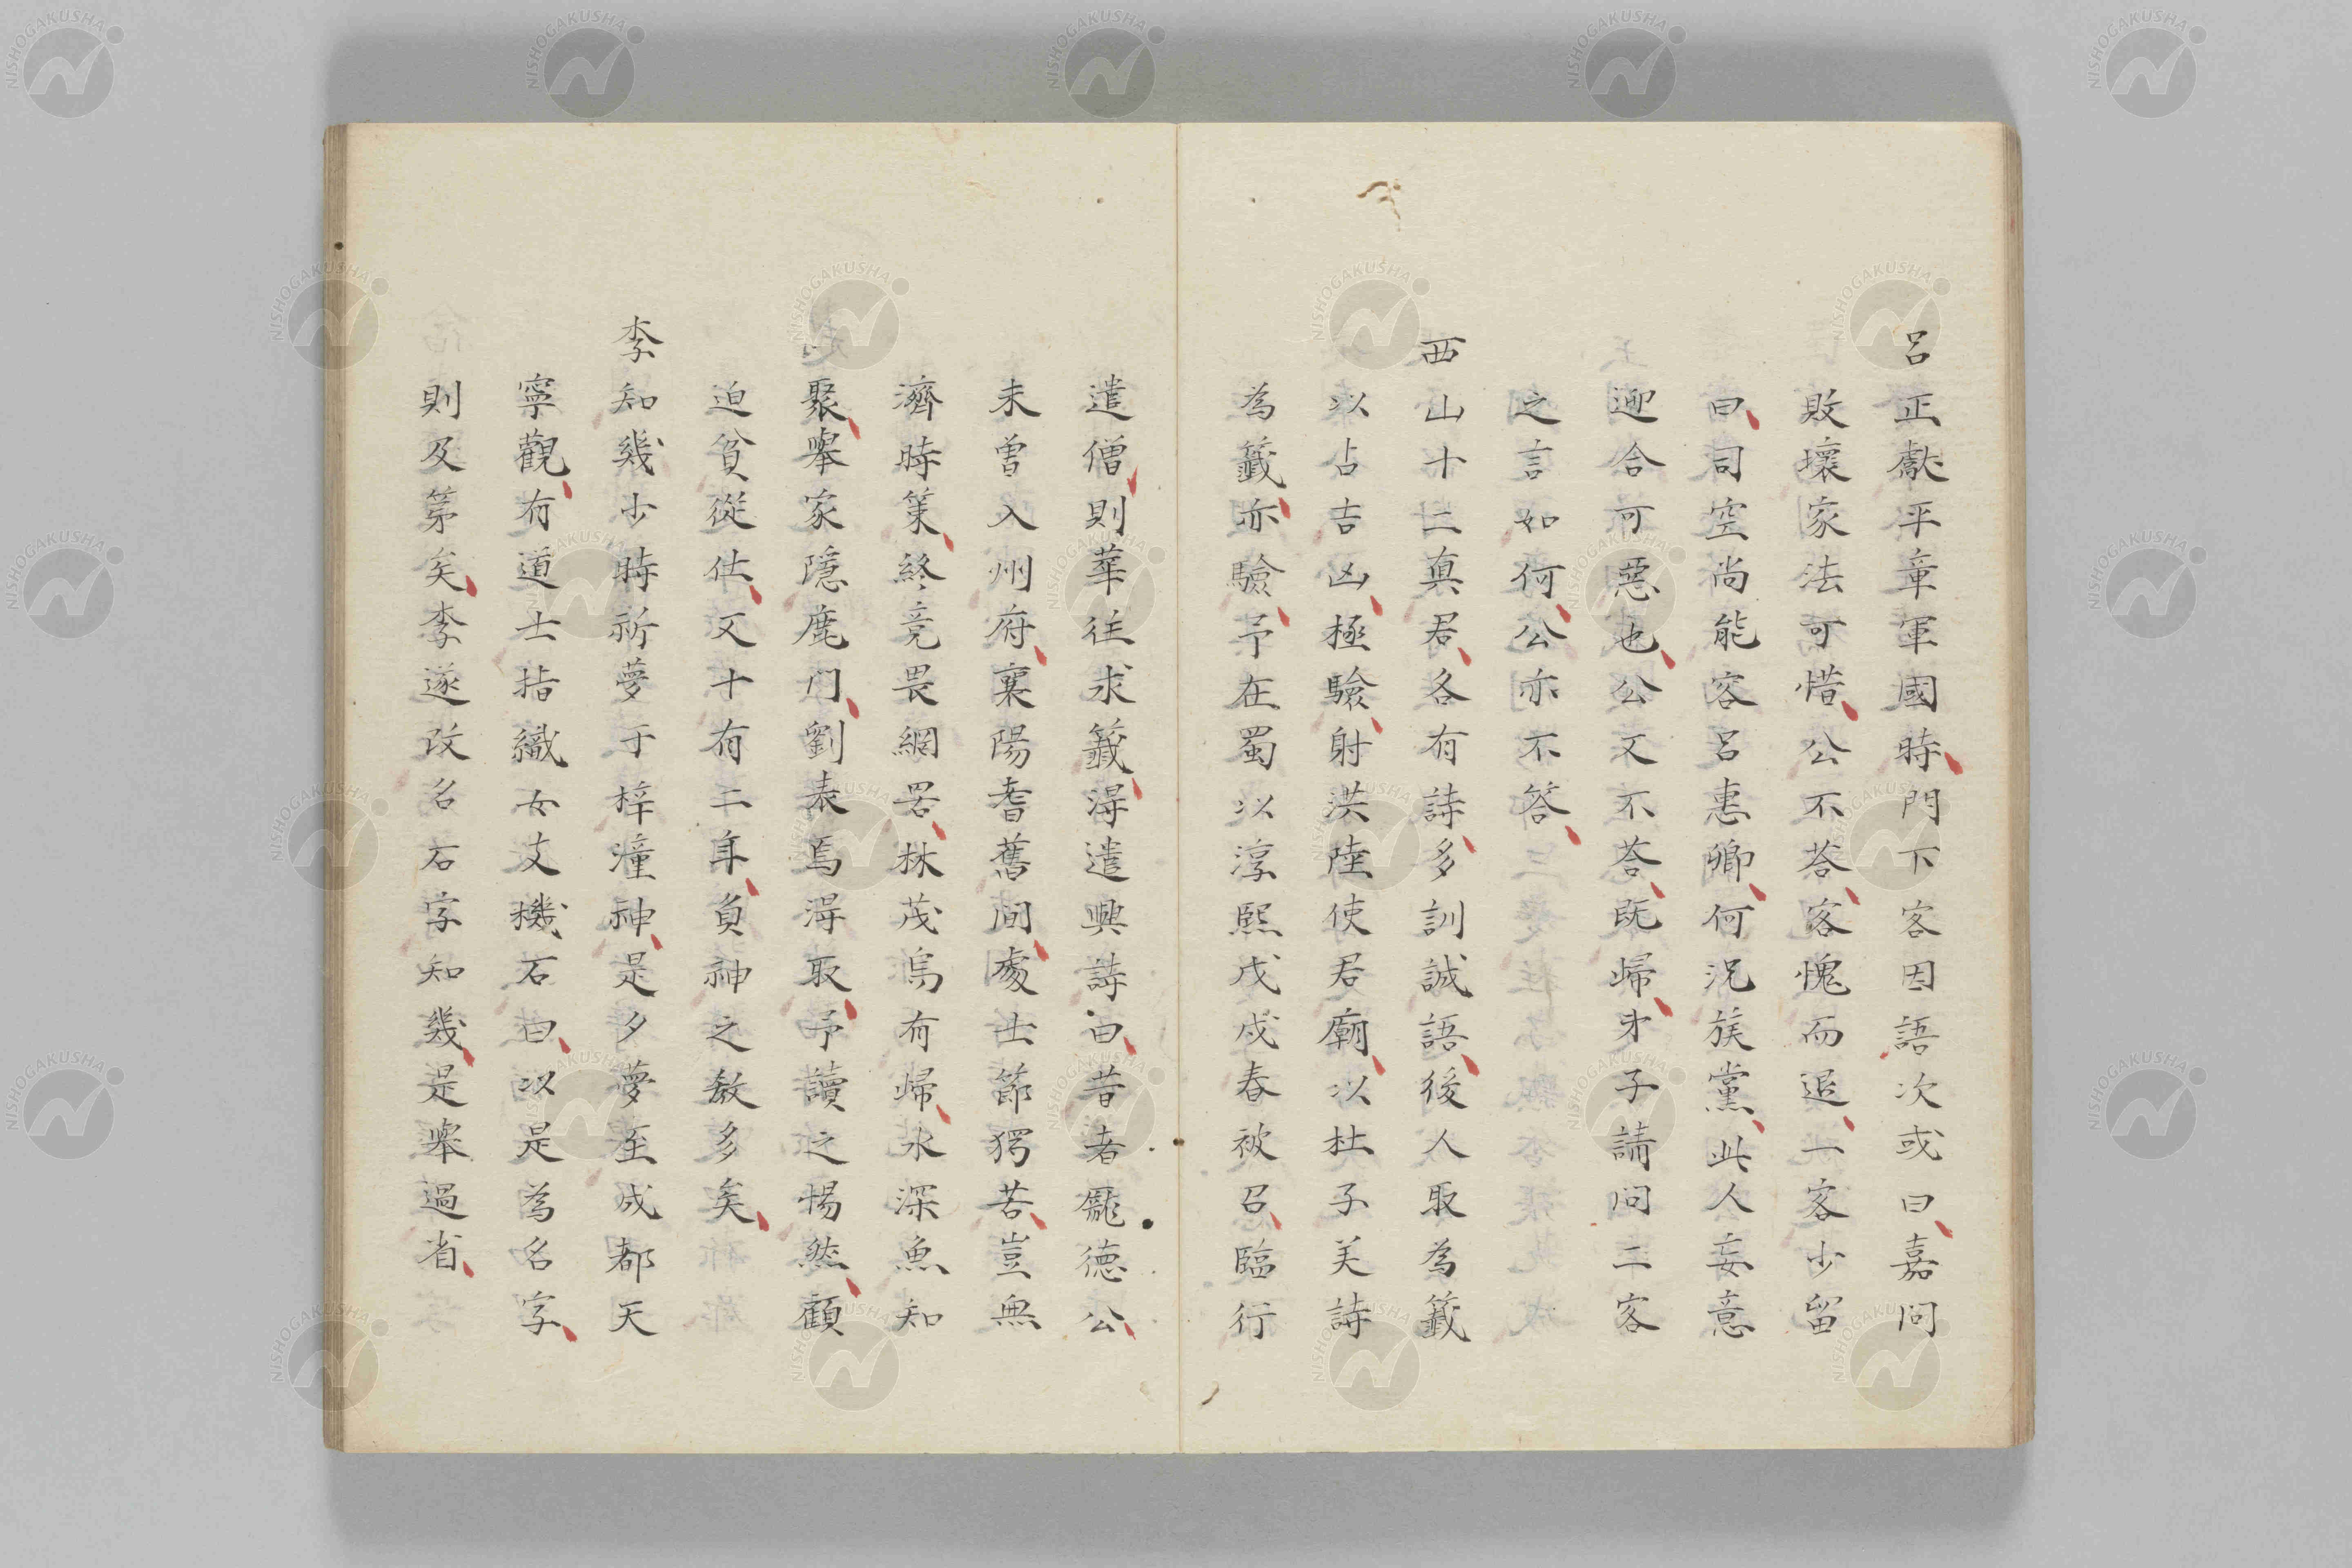 呂正獻平章軍國時門下客因語次或曰嘉問
敗壞家法可惜公不荅客愧而退一客少留
曰司空尚能容呂惠卿何況族黨此人妄意
迎合可惡也公又不荅既歸子弟請問二客
之言如何公亦不答
西山十二真君各有詩多訓誡語後人取為籤
以占吉凶極驗射洪陸使君廟以杜子美詩
為籤亦驗予在蜀以淳熙戊戌春被召臨行
遣僧則華往求籤得遣興詩曰昔者龐德公
未曾入州府襄陽耆舊間處士節獨苦豈無
濟時策終竟畏網罟林茂鳥有歸水深魚知
聚舉家隱鹿門劉表焉得取予讀之惕然顧
迫貧從仕又十有二年負神之教多矣
李知幾少時祈夢于梓潼神是夕夢至成都天
寧觀有道士指織女支機石曰以是為名字
則及第矣李遂改名石字知幾是舉過省
NISHOGAKUSHA